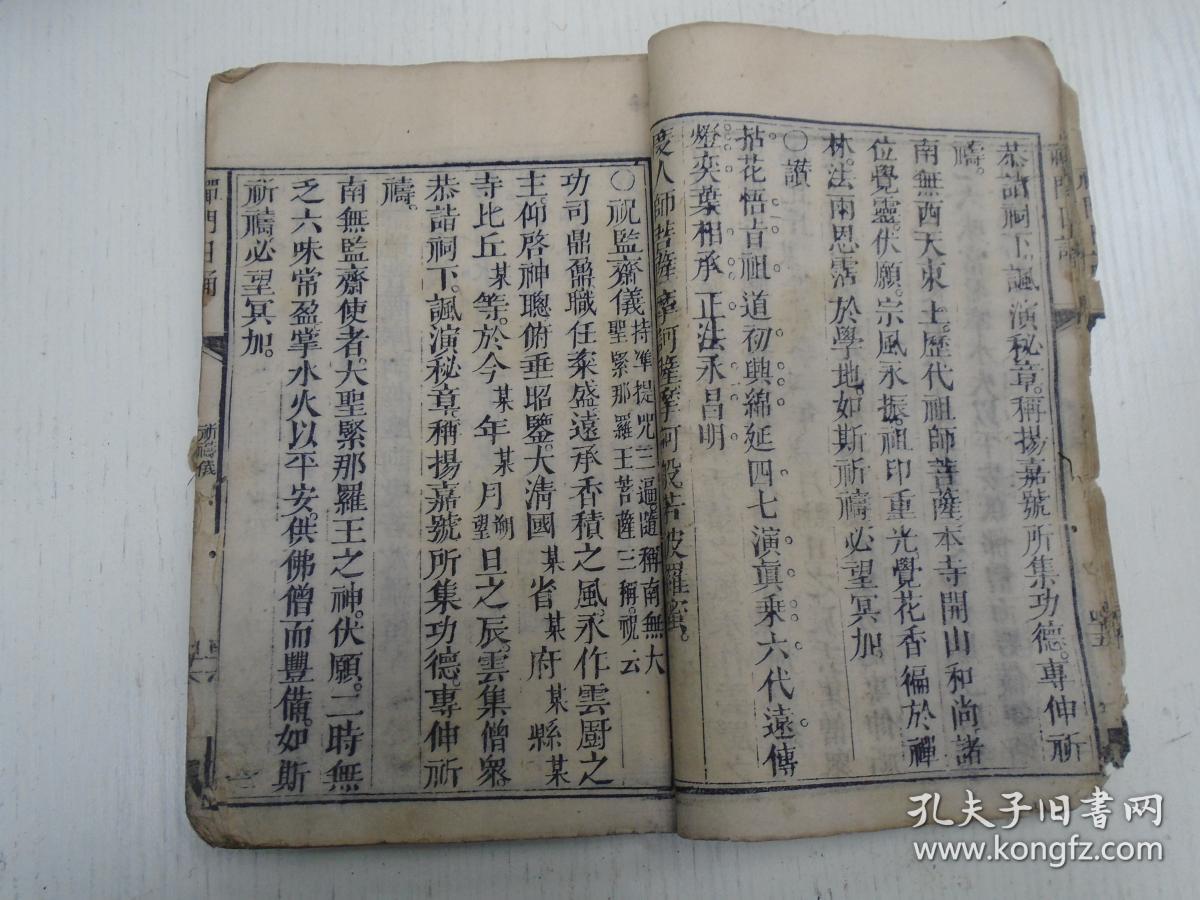 恭詣祠下。諷演秘章。稱揚嘉號。所集功德。專伸祈
禱。
南無西天東土。歷代祖師菩薩。本寺開山和尚。諸
位覺靈。伏願。宗風永振。祖印重光。覺花香徧於禪
林。法雨恩霑於學地。如斯祈禱。必望冥加。
○讚
拈花悟旨。祖道初興。綿延四七演眞乘。六代遠傳
燈。奕葉相承。正法永昌明
度人師菩薩摩訶薩摩訶般若波羅蜜。
五
○祝監齋儀 持準提咒三遍。隨稱南無大
聖緊那羅王菩薩三稱。祝云
功司鼎鼐。職任粢盛。遠承香積之風。永作雲厨之
主。仰啓神聰。俯垂昭鑒。大清國某省某府某縣某
寺比丘某等。於今某年某月朔望旦之辰。雲集僧眾。
恭詣祠下。諷演秘章。稱揚嘉號。所集功德。專伸祈
禱。
南無監齋使者。大聖緊那羅王之神。伏願。二時無
乏。六味常盈。掌水火以平安。供佛僧而豐備。如斯
祈禱。必望冥加。
禪門日誦
祈禱儀
孔夫子旧书网
www.kongfz.com